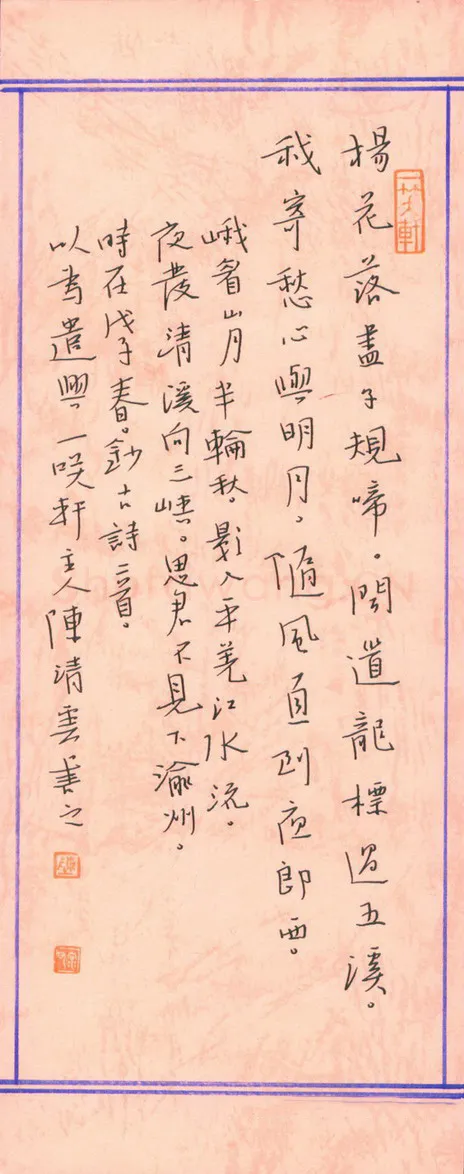 一笑軒
楊花落盡子規啼。聞道龍標過五溪。
我寄愁心與明月。隨風直到夜郎西。
峨眉山月半輪秋。影入平羌江水流。
夜發清溪向三峽。思君不見下渝州。
時在戊子春。鈔古詩二首。
以書遣興。一咲軒主人陳清雲書之